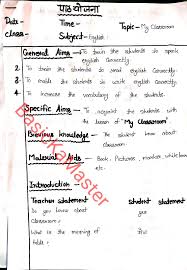 पाठ योजना
Date - Time -
class - Subject - English Topic - My Classroom
General Aims - To train the students to speak
English Correctly.
2 - To train the students to read English Correctly.
3 - To enable the students to write english Correctly
4 - To increase the vocabulary of the students.
Specific Aims - To acquaint the students with
the lesson of "My Classroom"
Previous knowledge - The student know about
classroom
Material Aids - Book, Pictures, marker, white board
etc.
Introduction -
Teacher statement Student statement
Do you know about yes
Classroom?
What is the meaning of
table?
BastiKaMaster